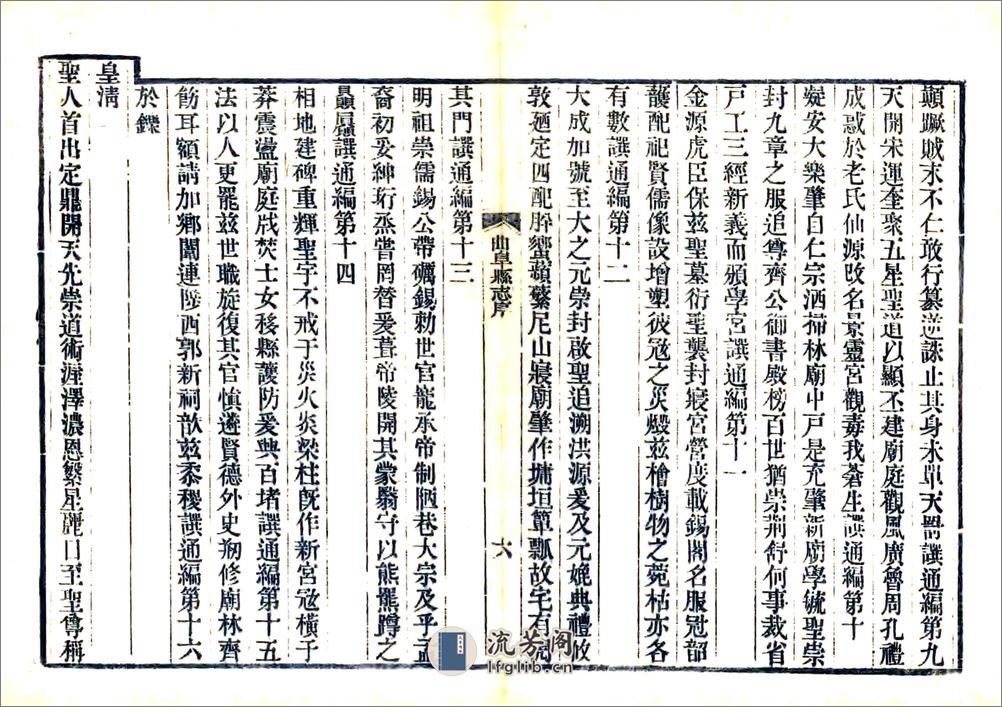 顚蹶賊末不仁敢行簒逆誅止其身未單天罰譔通編第九
天開宋運奎聚五星聖道以顯丕建廟庭觀風廣魯周孔禮
成惑於老氏仙源改名景靈宮觀毒我蒼生譔通編第十
安大樂肇自仁宗洒掃林廟中戸是充肇新廟學毓聖崇
封九章之服追尊齊公御書殿榜百世猶崇荆舒何事裁省
戸工三經新義而頒學宮譔通編第十一
金源虎臣保兹聖墓衍聖襲封寢宮營度載錫閣名服冠韶
頀配祀賢儒像設增塑彼冦之災燬兹檜樹物之菀枯亦各
有數譔通編第十二
大成加號至大之元崇封啟聖追溯洪源爰及元娩典禮攸
敦廼定四配胙蠁蘋蘩尼山寢廟肇作墉垣簞瓢故宅有
其門譔通編第十三
明祖崇儒錫公帶礪錫勅世官寵承帝制陋巷大宗及乎孟
裔初妥紳珩烝嘗罔替爰葺帝陵開其蒙翳守以熊羆蹲之
贔屭譔通編第十四
相地建碑重輝聖宇不戒于災火炎梁柱旣作新宮冦橫于
莽震盪廟庭戕焚士女移縣護防爰興百堵譔通編第十五
法以人更罷兹世職旋復其官愼遴賢德外史剏修廟林齊
飭耳額請加鄉闈連陟西郭新祠歆兹黍稷譔通編第十六
於鑠
皇清
聖人首出定鼎開天先崇道術渥澤濃恩繫星麗日至聖尊稱
曲阜縣志序
六
流芳阁
lfglib.cn